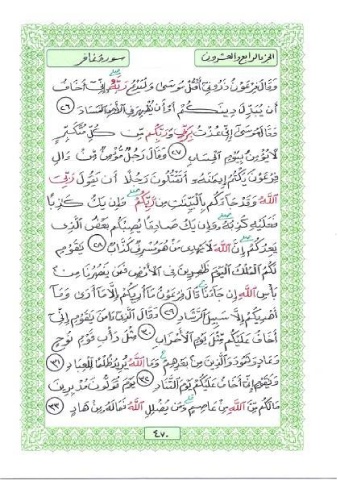 الجزء الرابع والعشرون
سورة غافر
وَقَالَ فِرْعَوْنُ ذَرُونِىٓ أَقْتُلْ مُوسَىٰ وَلْيَدْعُ رَبَّهُۥٓ إِنِّىٓ أَخَافُ
أَن يُبَدِّلَ دِينَكُمْ أَوْ أَن يُظْهِرَ فِى ٱلْأَرْضِ ٱلْفَسَادَ ٢٦
وَقَالَ مُوسَىٰٓ إِنِّى عُذْتُ بِرَبِّى وَرَبِّكُم مِّن كُلِّ مُتَكَبِّرٍ
لَّا يُؤْمِنُ بِيَوْمِ ٱلْحِسَابِ ٢٧ وَقَالَ رَجُلٌ مُّؤْمِنٌ مِّنْ ءَالِ
فِرْعَوْنَ يَكْتُمُ إِيمَٰنَهُۥٓ أَتَقْتُلُونَ رَجُلًا أَن يَقُولَ رَبِّىَ
ٱللَّهُ وَقَدْ جَآءَكُم بِٱلْبَيِّنَٰتِ مِن رَّبِّكُمْ وَإِن يَكُ كَٰذِبًا
فَعَلَيْهِ كَذِبُهُۥ وَإِن يَكُ صَادِقًا يُصِبْكُم بَعْضُ ٱلَّذِى
يَعِدُكُمْ إِنَّ ٱللَّهَ لَا يَهْدِى مَنْ هُوَ مُسْرِفٌ كَذَّابٌ ٢٨ يَٰقَوْمِ
لَكُمُ ٱلْمُلْكُ ٱلْيَوْمَ ظَٰهِرِينَ فِى ٱلْأَرْضِ فَمَن يَنصُرُنَا مِنۢ
بَأْسِ ٱللَّهِ إِن جَآءَنَا قَالَ فِرْعَوْنُ مَآ أُرِيكُمْ إِلَّا مَآ أَرَىٰ وَمَآ
أَهْدِيكُمْ إِلَّا سَبِيلَ ٱلرَّشَادِ ٢٩ وَقَالَ ٱلَّذِىٓ ءَامَنَ يَٰقَوْمِ إِنِّىٓ
أَخَافُ عَلَيْكُم مِّثْلَ يَوْمِ ٱلْأَحْزَابِ ٣٠ مِثْلَ دَأْبِ قَوْمِ نُوحٍ
وَعَادٍ وَثَمُودَ وَٱلَّذِينَ مِنۢ بَعْدِهِمْ وَمَا ٱللَّهُ يُرِيدُ ظُلْمًا لِّلْعِبَادِ ٣١
وَيَٰقَوْمِ إِنِّىٓ أَخَافُ عَلَيْكُمْ يَوْمَ ٱلتَّنَادِ ٣٢ يَوْمَ تُوَلُّونَ مُدْبِرِينَ
مَا لَكُم مِّنَ ٱللَّهِ مِنْ عَاصِمٍ وَمَن يُضْلِلِ ٱللَّهُ فَمَا لَهُۥ مِنْ هَادٍ ٣٣
٤٧٠